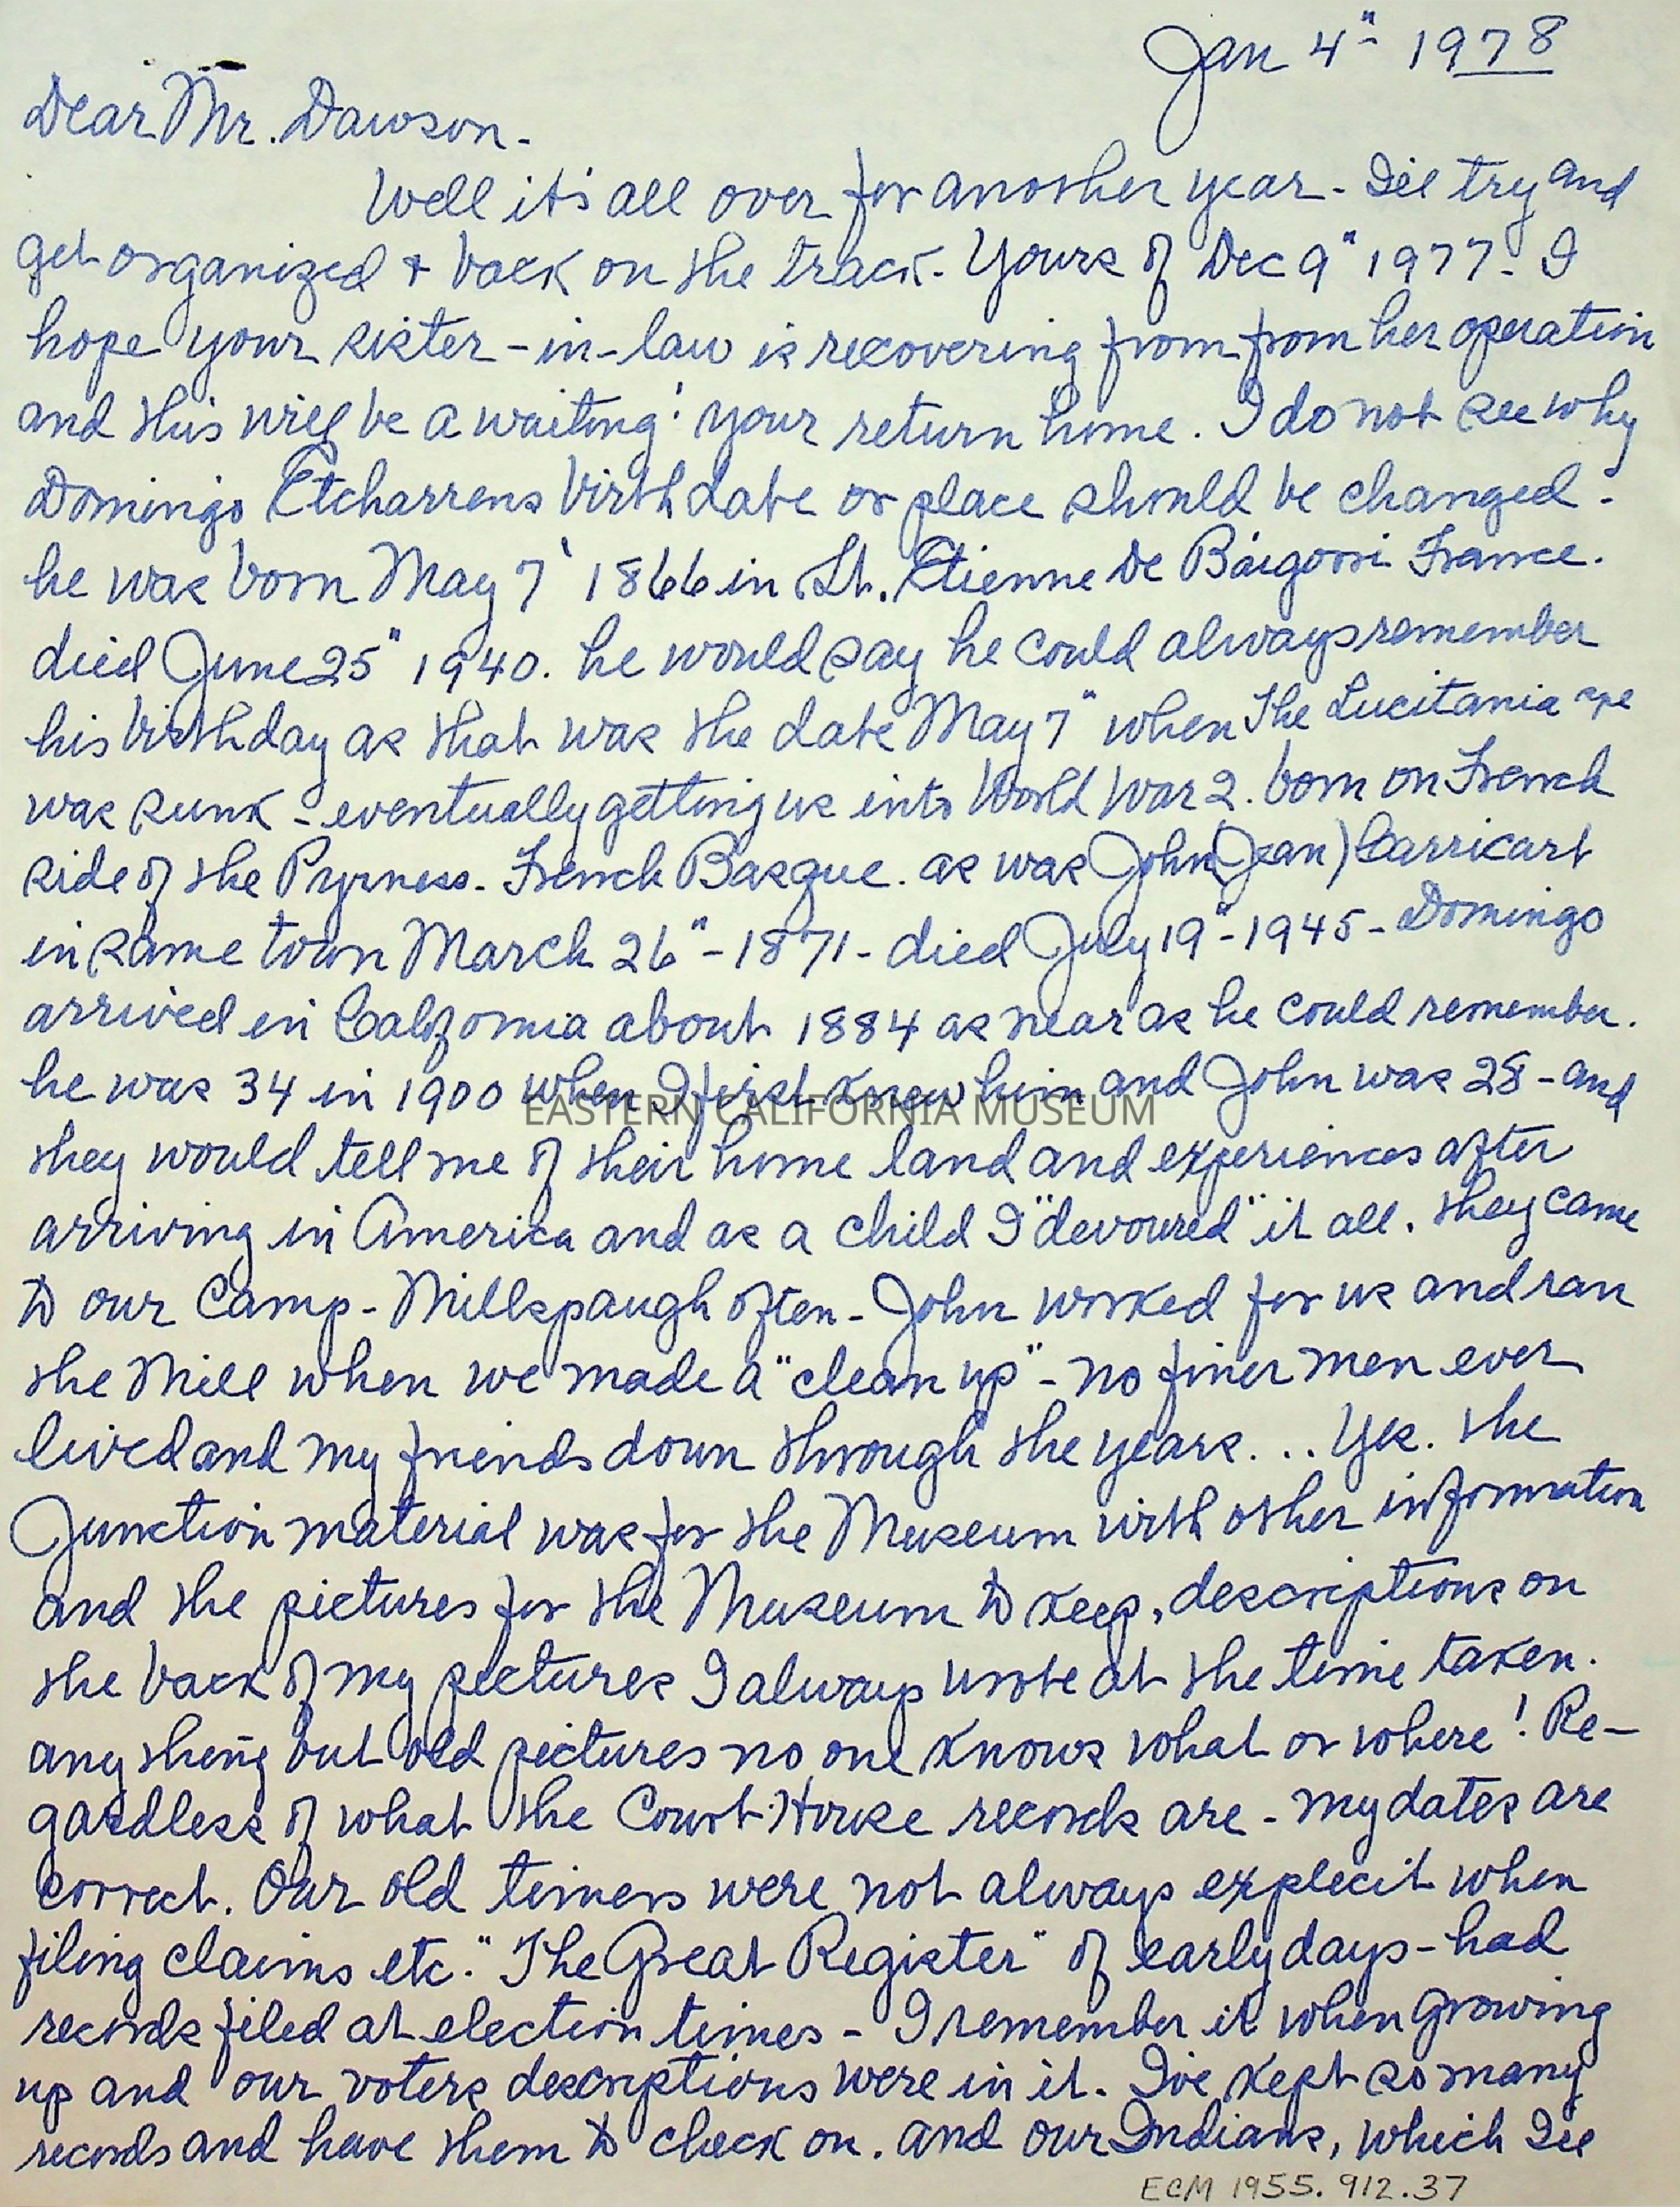 Jan 4" 1978
Dear Mr. Dawson.
Well it's all over for another year - I'll try and
get organized + back on the track. Yours of Dec 9" 1977. I
hope your sister-in-law is recovering from from her operation
and this will be a waiting' your return home. I do not see why
Domingo Etcharrens birth date or place should be changed -
he was born May 7' 1866 in St. Etienne De Baigorri France.
died June 25" 1940. he would say he could always remember
his birthday as that was the date May 7" when The Lucitania
was sunk - eventually getting us into World War 2. born on French
side of the Pyrness. French Basque. as was John (Jean) Carricart
in same town March 26" - 1871 - died July 19" - 1945 - Domingo
arrived in California about 1884 as near as he could remember.
he was 34 in 1900 when I first knew him and John was 28 - and
EASTERN CALIFORNIA MUSEUM
they would tell me of their home land and experiences after
arriving in America and as a child I "devoured" it all. they came
to our Camp - Millspaugh often - John worked for us and ran
the Mill when we made a "clean up" - no finer men ever
lived and my friends down through the years... Yes. the
Junction material was for the Museum with other information
and the pictures for the Museum to keep, descriptions on
the back of my pictures I always wrote at the time taken.
any thing but old pictures no one knows what or where! Re-
gardless of what the Court House records are - my dates are
correct. Our old timers were not always explecit when
filing claims etc. "The Great Register" of early days - had
records filed at election times - I remember it when growing
up and our voters descriptions were in it. I've kept so many
records and have them to check on. and our Indians, which I'll
ECM 1955.912.37